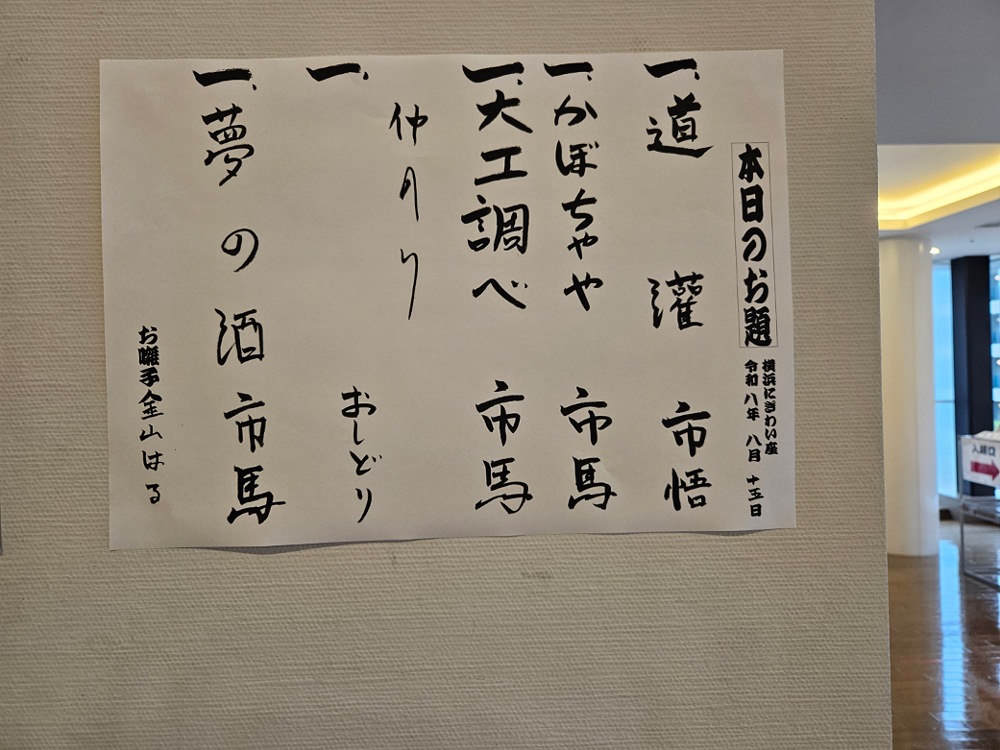 本日のお題
横浜にぎわい座
令和八年 八月 十五日
一、道灌 市悟
一、かぼちゃや 市馬
一、大工調べ 市馬
仲入り
一、 おしどり
一、夢の酒 市馬
お囃子 金山はる
入場口